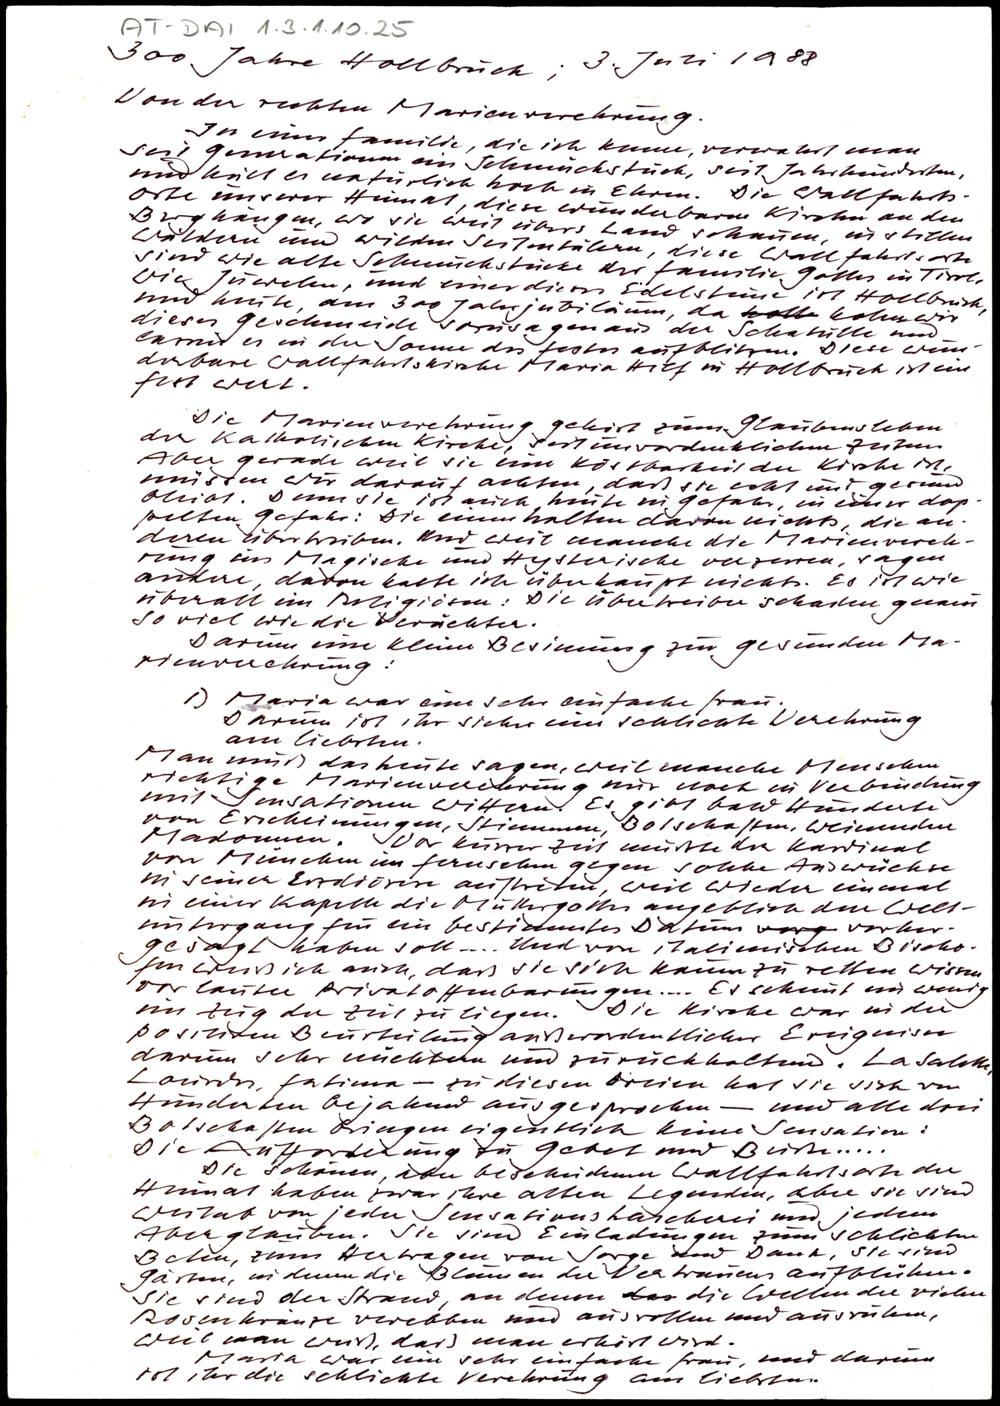 AT-DAI 1.3.1.10.25
300 Jahre Hollbruck ; 3. Juli 1988
Von der rechten Marienverehrung.
In einer Familie, die ich kenne, verwahrt man
seit Generationen ein Schmuckstück, seit Jahrhunderten,
und hält es natürlich hoch in Ehren. Die Wallfahrts-
orte unserer Heimat, diese wunderbaren Kirchen an den
Berghängen, wo sie weit übers Land schauen, in stillen
Wäldern und wilden Seitentälern, diese Wallfahrtsorte
sind wie alte Schmuckstücke der Familie Gottes in Tirol,
wie Juwelen, und einer dieser Edelsteine ist Hollbruck,
und heute, am 300 Jahrjubiläum, da holen wir
dieses Geschmeide sozusagen aus der Schatulle und
lassen es in der Sonne des Festes aufblitzen. Diese wun-
derbare Wallfahrtskirche Maria Hilf in Hollbruck ist ein
Fest wert.
Die Marienverehrung gehört zum Glaubensleben
der Katholischen Kirche, seit unvordenklichen Zeiten
Aber gerade weil sie eine Kostbarkeit der Kirche ist,
müssen wir darauf achten, daß sie echt und gesund
bleibt. Denn sie ist auch heute in Gefahr, in einer dop-
pelten Gefahr: Die einen halten davon nichts, die an-
deren übertreiben. Und weil manche die Marienvereh-
rung ins Magische und Hysterische verzerren, sagen
andere, davon halte ich überhaupt nichts. Es ist wie
überall im Religiösen: Die Übertreiber schaden genau
so viel wie die Verächter.
Darum eine kleine Besinnung zur gesunden Ma-
rienverehrung:
1) Maria war eine sehr einfache Frau.
Darum ist ihr sicher eine schlichte Verehrung
am liebsten.
Man muß das heute sagen, weil manche Menschen
richtige Marienverehrung nur noch in Verbindung
mit Sensationen wittern. Es gibt bald Hunderte
von Erscheinungen, Stimmen, Botschaften, weinenden
Madonnen. Vor kurzer Zeit mußte der Kardinal
von München im Fernsehen gegen solche Auswüchse
in seiner Erzdiözese auftreten, weil wieder einmal
in einer Kapelle die Muttergottes angeblich den Welt-
untergang für ein bestimmtes Datum vorher-
gesagt haben soll.... Und von italienischen Bischö-
fen weiß ich auch, daß sie sich kaum zu retten wissen
vor lauter Privatoffenbarungen.... Es scheint ein wenig
im Zug der Zeit zu liegen. Die Kirche war in der
positiven Beurteilung außerordentlicher Ereignisse
darum sehr nüchtern und zurückhaltend. La Salette,
Lourdes, Fatima — zu diesen Dreien hat sie sich von
Hunderten bejahend ausgesprochen — und alle drei
Botschaften bringen eigentlich keine Sensation:
Die Aufforderung zu Gebet und Buße.....
Die schönen, aber bescheidenen Wallfahrtsorte der
Heimat haben zwar ihre alten Legenden, aber sie sind
weitab von jeder Sensationshascherei und jedem
Aberglauben. Sie sind Einladungen zum schlichten
Beten, zum Hertragen von Sorge und Dank, sie sind
Gärten, in denen die Blumen des Vertrauens aufblühen.
Sie sind der Strand, an denen die Wellen der vielen
Rosenkränze verebben und ausrollen und ausruhen,
weil man weiß, daß man erhört wird.
Maria war eine sehr einfache Frau, und darum
ist ihr die schlichte Verehrung am liebsten.